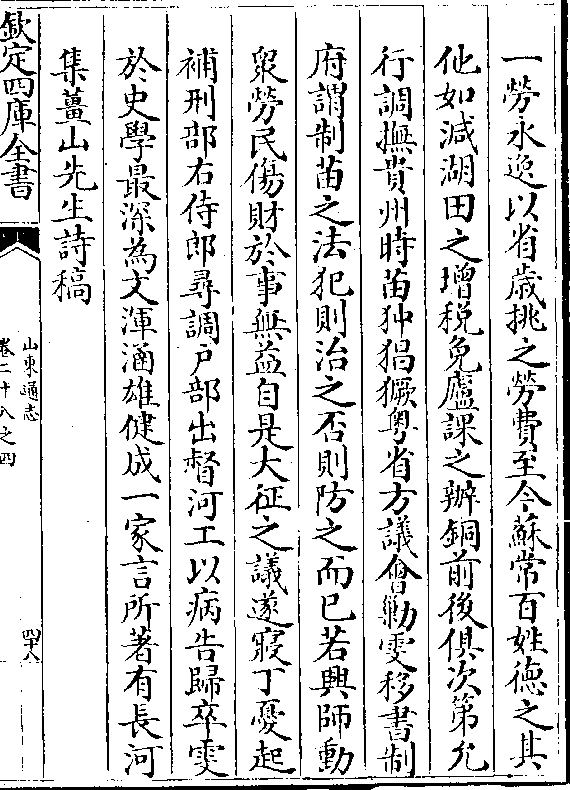 一勞永逸以省歲挑之勞費至今蘇常百姓德之其
他如減湖田之增税免廬課之辦銅前後俱次第允
行調撫貴州時苗狆猖獗粤省方議會勦雯移書制
府謂制苗之法犯則治之否則防之而已若興師動
衆勞民傷財於事無益自是大征之議遂寢丁憂起
補刑部右侍郎尋調户部出督河工以病告歸卒雯
於史學最深為文渾涵雄健成一家言所著有長河
集薑山先生詩稿
欽定四庫全書
山東通志
卷二十八之四
四十八